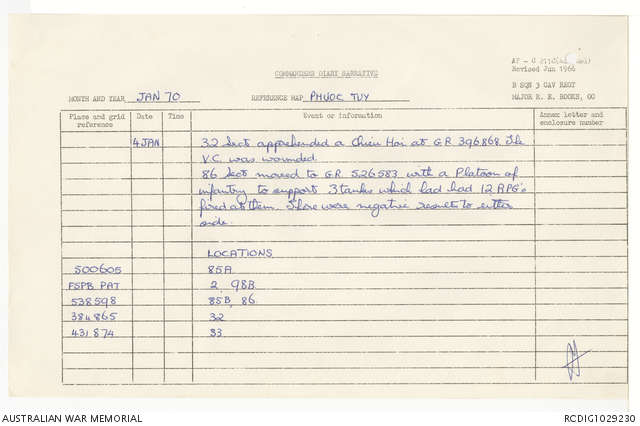 COMMANDERS DIARY NARRATIVE
Revised Jun 1966
B SQN 3 CAV REGT
MONTH AND YEAR JAN 70 REFERENCE MAP PHUOC TUY MAJOR R. K. BOOKS, OC
Place and grid reference Date Time Event or information Annex letter and enclosure number
4 JAN 32 Sect apprehended a Chieu Hoi at GR 396868. The
V.C. was wounded.
86 Sect moved to GR 526583 with a Platoon of
infantry to support 3 tanks which had had 12 RPG's
fired at them. There were negative results to either
side.
LOCATIONS
500605 85A
FSPB PAT 2, 98B
538598 85B, 86
384865 32
431874 33
AUSTRALIAN WAR MEMORIAL RCDIG1029230